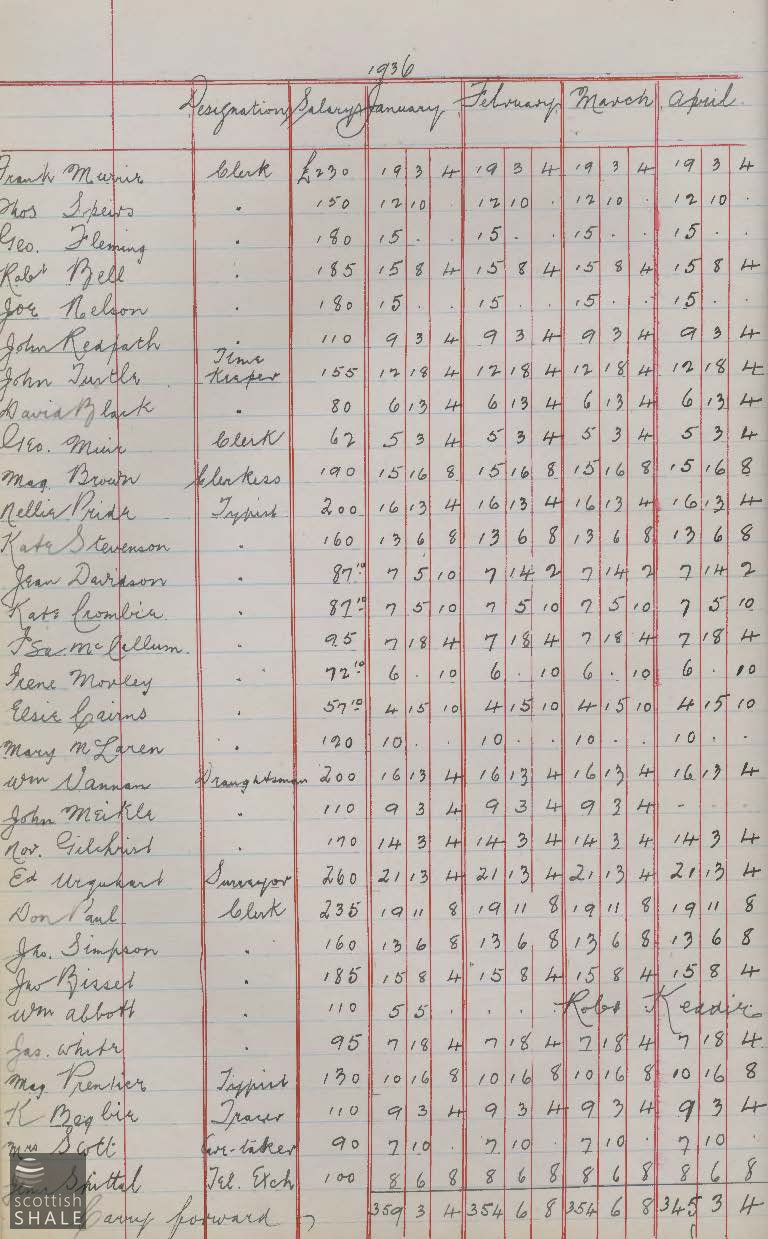 1936
Designation Salary January February March April
Frank Muirir Clerk £230 19 3 4 19 3 4 19 3 4 19 3 4
Thos Speirs " 150 12 10 12 10 . 12 10 . 12 10 .
Geo. Fleming " 180 15 . . 15 . . 15 . . 15 . .
Robt Bell " 185 15 8 4 15 8 4 15 8 4 15 8 4
Joe Nelson " 180 15 . . 15 . . 15 . . 15 . .
John Redpath " 110 9 3 4 9 3 4 9 3 4 9 3 4
John Turtle Time Keeper 155 12 18 4 12 18 4 12 18 4 12 18 4
David Black " 80 6 13 4 6 13 4 6 13 4 6 13 4
Geo. Muir Clerk 62 5 3 4 5 3 4 5 3 4 5 3 4
Mag Brown Clerkess 190 15 16 8 15 16 8 15 16 8 15 16 8
Nellie Pride Typist 200 16 13 4 16 13 4 16 13 4 16 13 4
Kate Stevenson " 160 13 6 8 13 6 8 13 6 8 13 6 8
Jean Davidson " 87 10 7 5 10 7 14 2 7 14 2 7 14 2
Kate Crombie " 87 10 7 5 10 7 5 10 7 5 10 7 5 10
Isa McCallum. " 95 7 18 4 7 18 4 7 18 4 7 18 4
Irene Morley " 72 10 6 . 10 6 . 10 6 . 10 6 . 10
Elsie Cairns " 57 10 4 15 10 4 15 10 4 15 10 4 15 10
Mary McLaren " 120 10 . . 10 . . 10 . . 10 . .
Wm Vannan Draughtsman 200 16 13 4 16 13 4 16 13 4 16 13 4
John Meikle " 110 9 3 4 9 3 4 9 3 4 - - -
Nor. Gilchrist " 170 14 3 4 14 3 4 14 3 4 14 3 4
Ed Urquhart Surveyor 260 21 13 4 21 13 4 21 13 4 21 13 4
Don Paul Clerk 235 19 11 8 19 11 8 19 11 8 19 11 8
Jno. Simpson " 160 13 6 8 13 6 8 13 6 8 13 6 8
Jno Bisset " 185 15 8 4 15 8 4 15 8 4 15 8 4
Wm Abbott " 110 5 5 . . . Robt Keddie
Jas. White " 95 7 18 4 7 18 4 7 18 4 7 18 4
Mag Prentice Typist 130 10 16 8 10 16 8 10 16 8 10 16 8
K Begbie Tracer 110 9 3 4 9 3 4 9 3 4 9 3 4
Mrs Scott Care-taker 90 7 10 . 7 10 . 7 10 . 7 10 .
Spittal Tel. Exch 100 8 6 8 8 6 8 8 6 8 8 6 8
Carry forward 359 3 4 354 6 8 354 6 8 345 3 4
scottish
SHALE